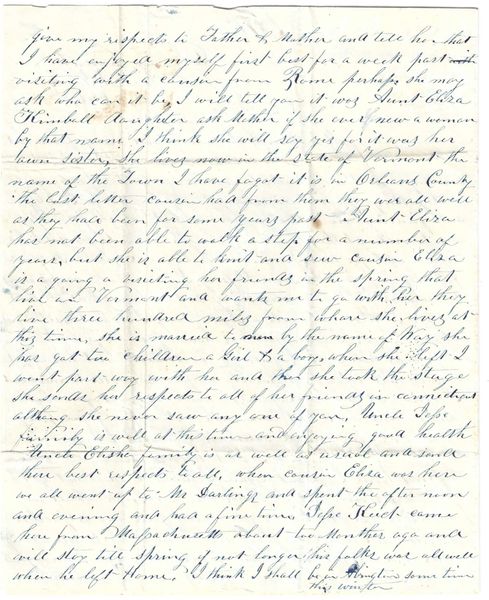 give my respects to Father & Mother and tell her that
I have enjoyed myself first best for a week past with
visiting with a cousin from Rome perhaps she may
ask who can it be, I will tell you it was Aunt Eliza
Kimball daughter ask Mother if she ever new a woman
by that name, I think she will say yes for it was her
own sister, she lives now in the state of Vermont the
name of the Town I have fogot it is in Orleans County
the last letter cousin had from them they wer all well
as they had ben for some years past Aunt Eliza
has not been able to walk a step for a number of
years, but she is able to knit and sew cousin Eliza
is a going a visiting her friends in the spring that
live in Vermont and wants me to go with her they
live three hundred miles from whare she lives at
this time, she is married to by the name of Way she
has got two children a Girl & a boy, when she left I
went part way with her and then she took the stage
she sends her respects to all of her friends in connecticut
although she never saw any one of you, Uncle Jesse
family is well at this time and enjoying good health
Uncle Elisha family is as well as usual and sends
there best respects to all, when cousin Eliza was here
we all went up to Mr Darlings and spent the afternoon
and evening and had a fine time, Jesse came
here from Massachusetts about two Monthes ago and
will stay till spring if not longer his folks was all well
when he left home, I think I shall be in Abington some time
this winter